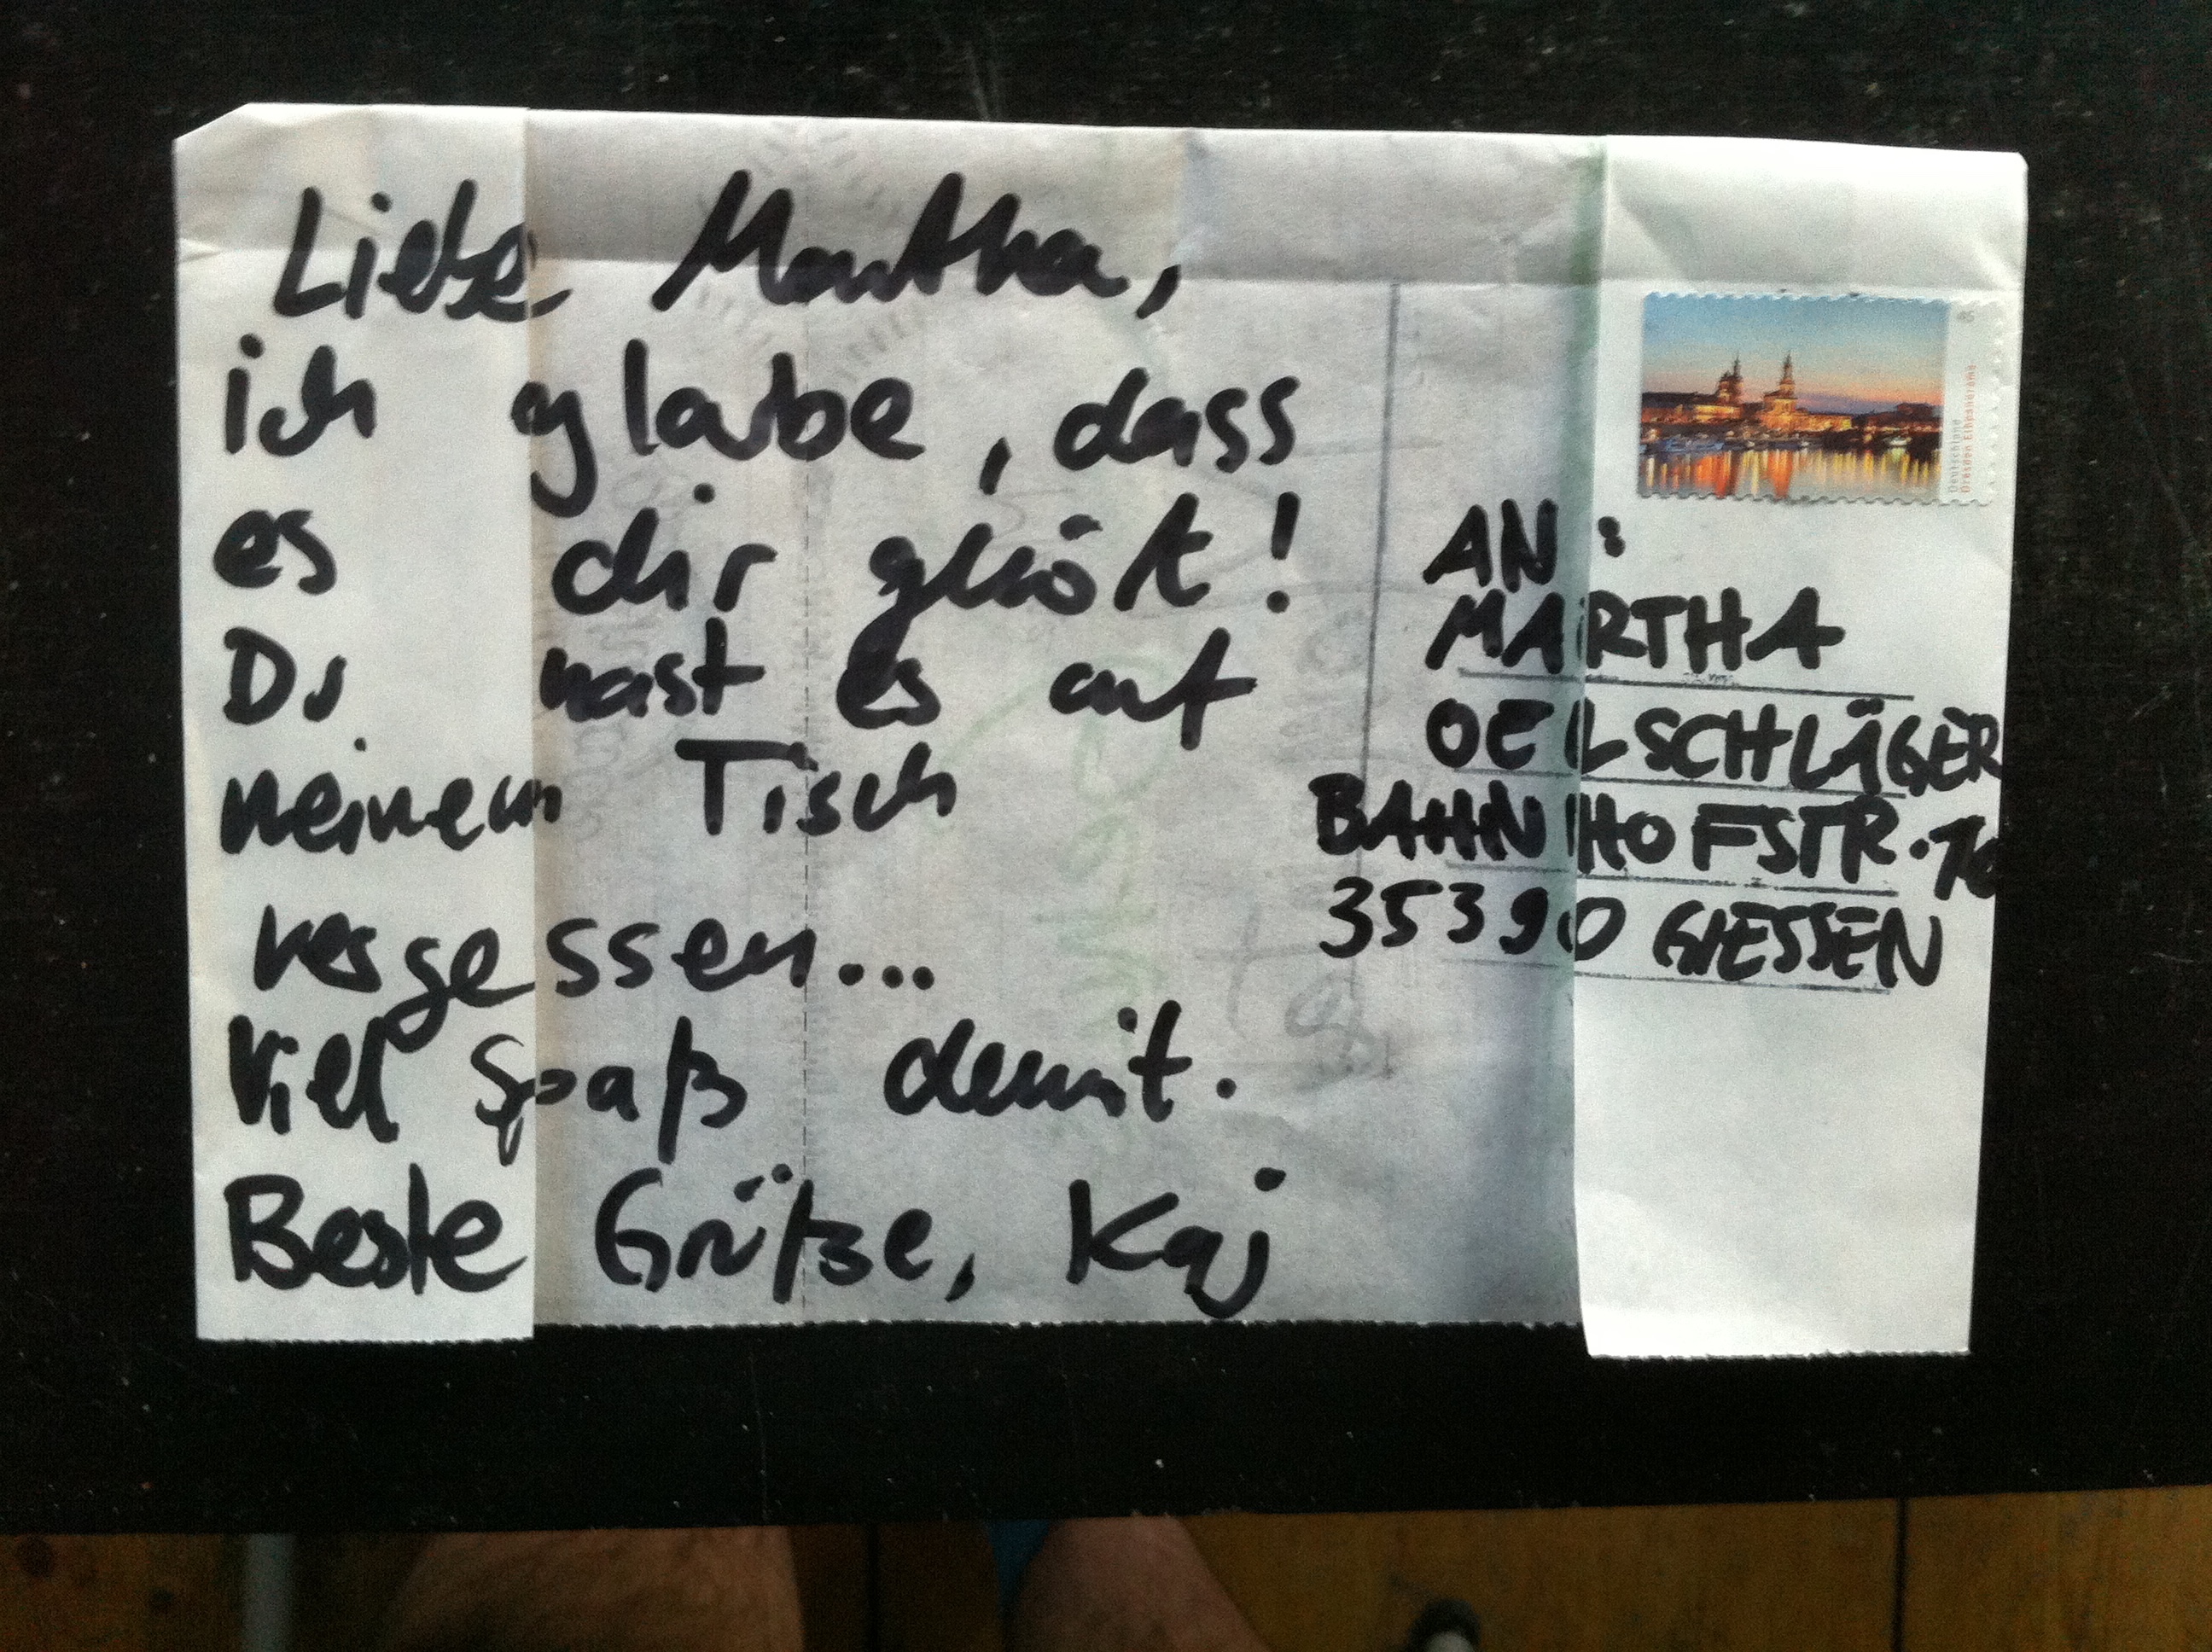 Liebe Martha,
ich glaube, dass
es dir gehört!
Du hast es auf
meinem Tisch
vergessen...
Viel Spaß damit.
Beste Grütze, Kaj
45
Deutschland
Dresden Elbpanorama
AN:
MARTHA
OELSCHLÄGER
BAHNHOFSTR.
35390 GIESSEN